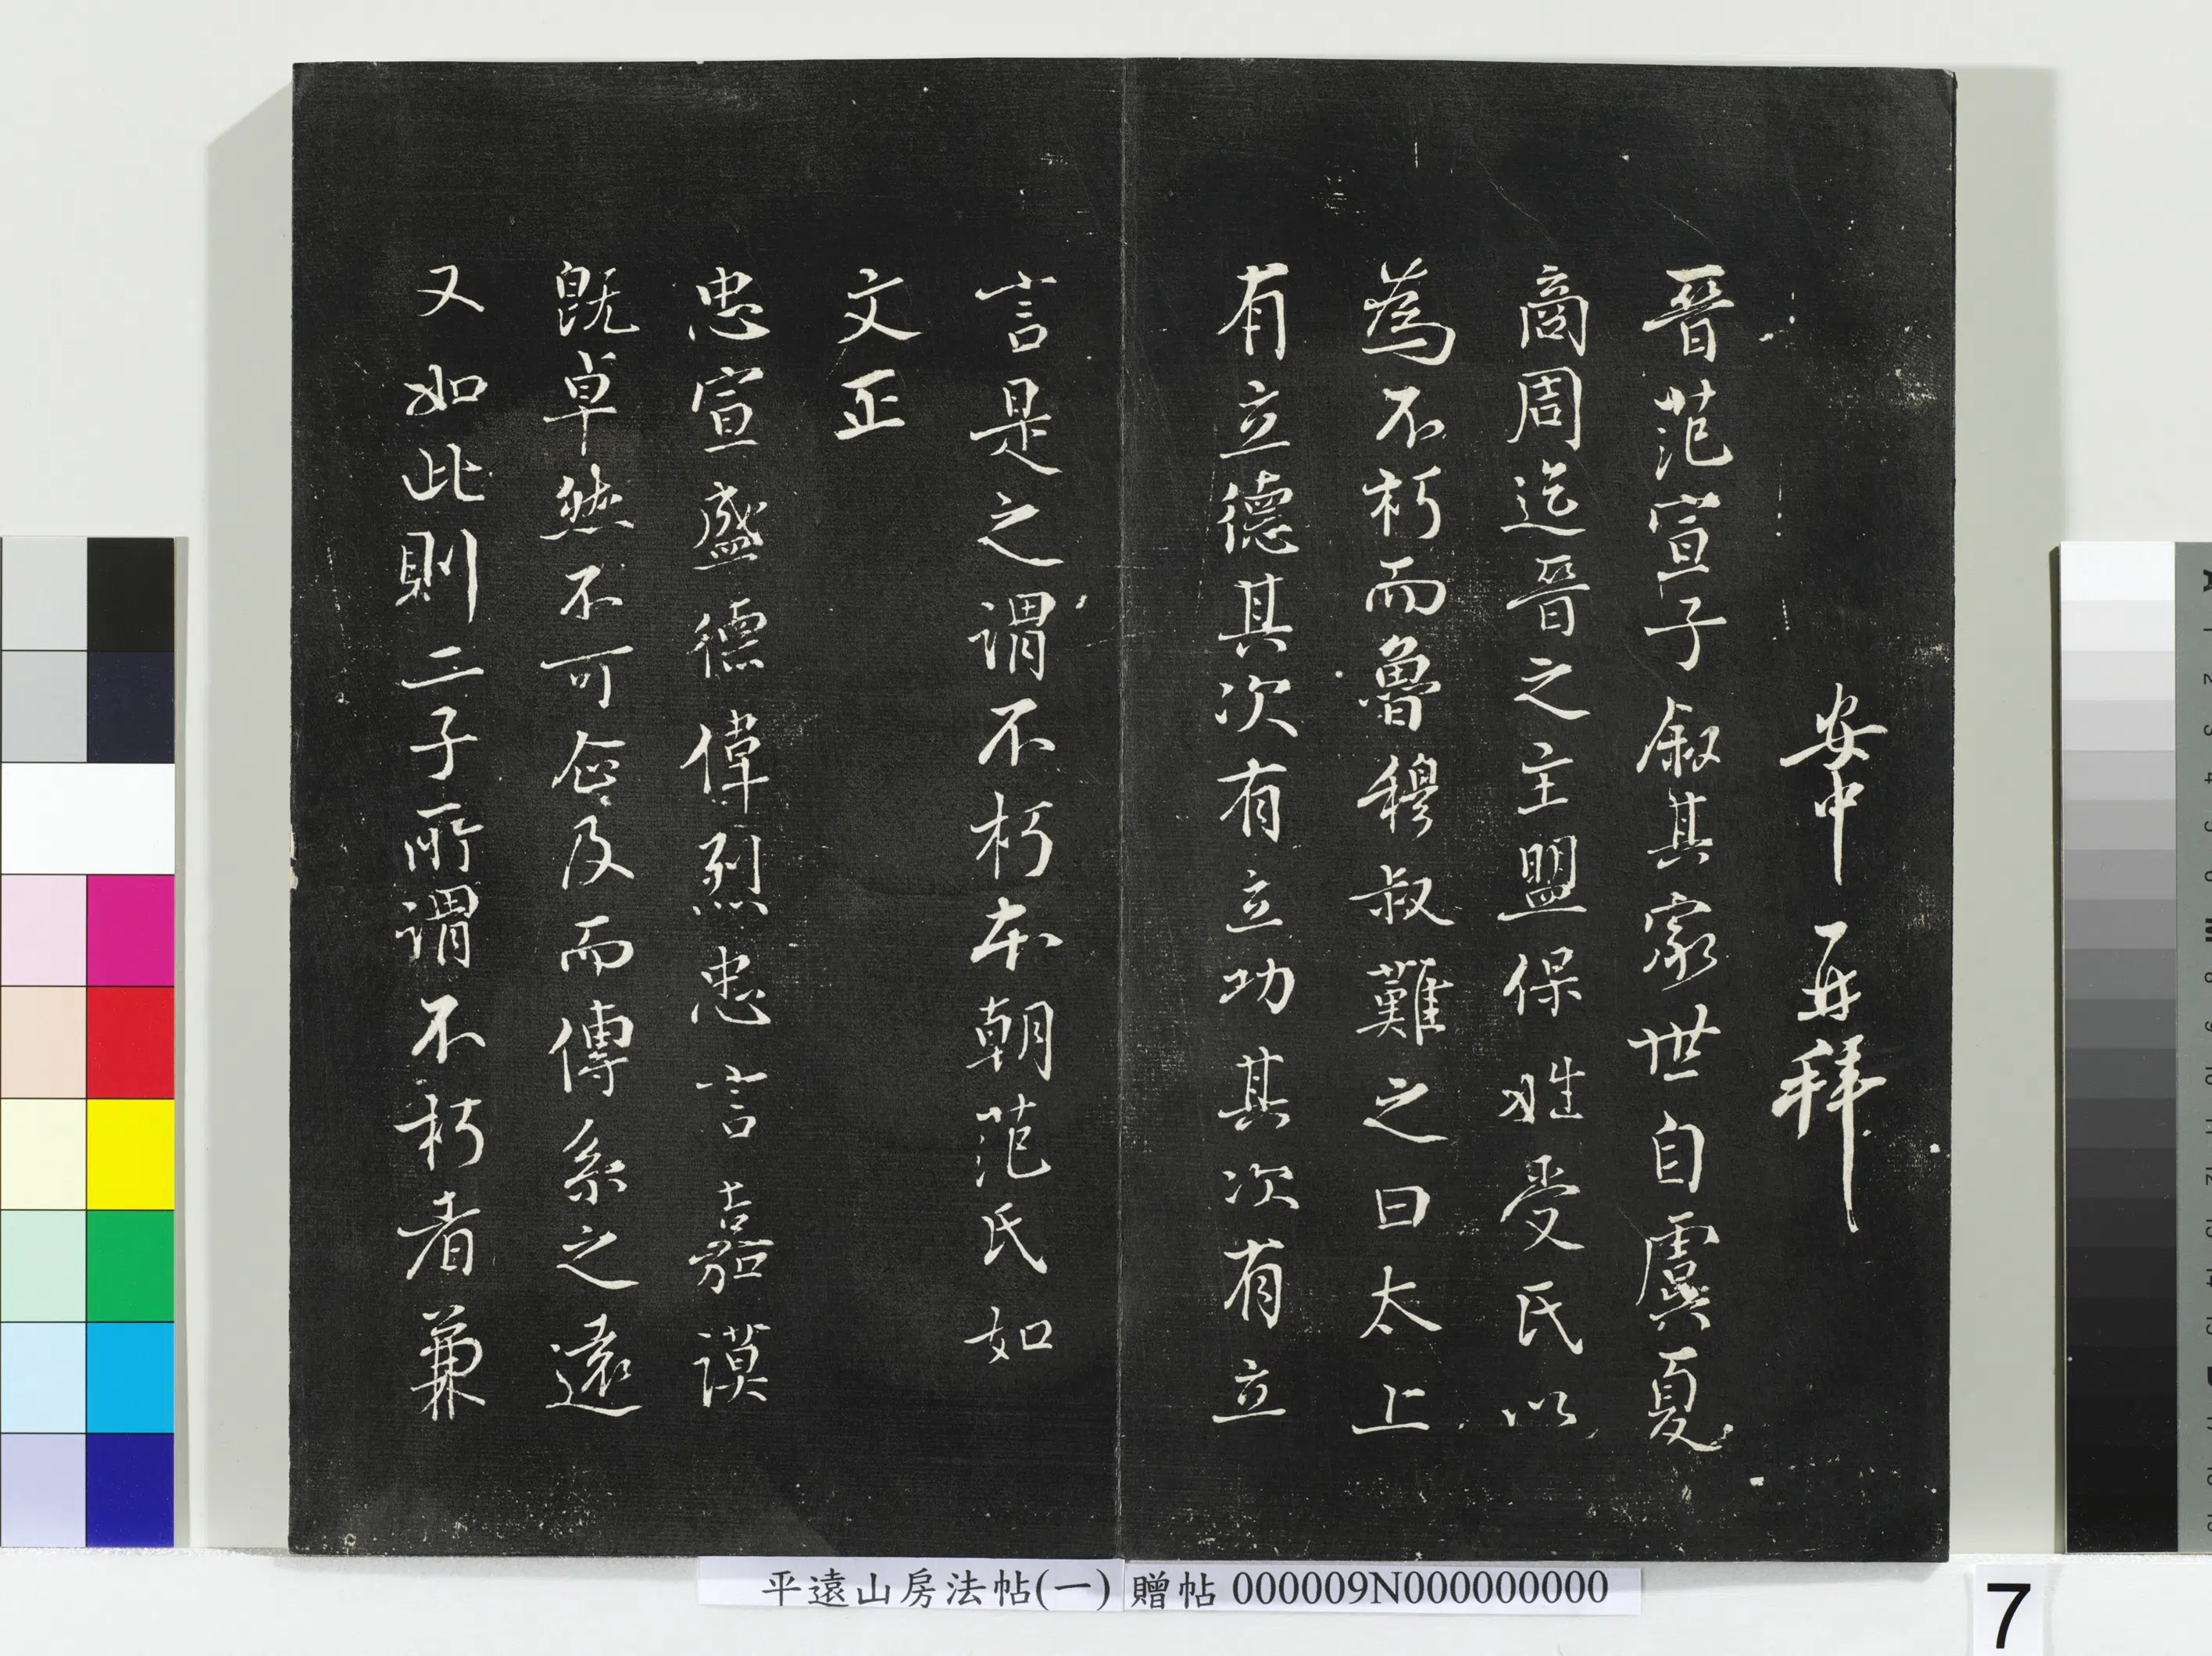 安中再拜
晉范宣子叙其家世自虞夏
商周迄晉之主盟保姓受氏以
為不朽而魯穆叔難之曰太上
有立德其次有立功其次有立
言是之謂不朽本朝范氏如
文正
忠宣盛德偉烈忠言嘉謨
既卓然不可企及而傳系之遠
又如此則二子所謂不朽者兼
平遠山房法帖(一) 贈帖 000009N000000000
7